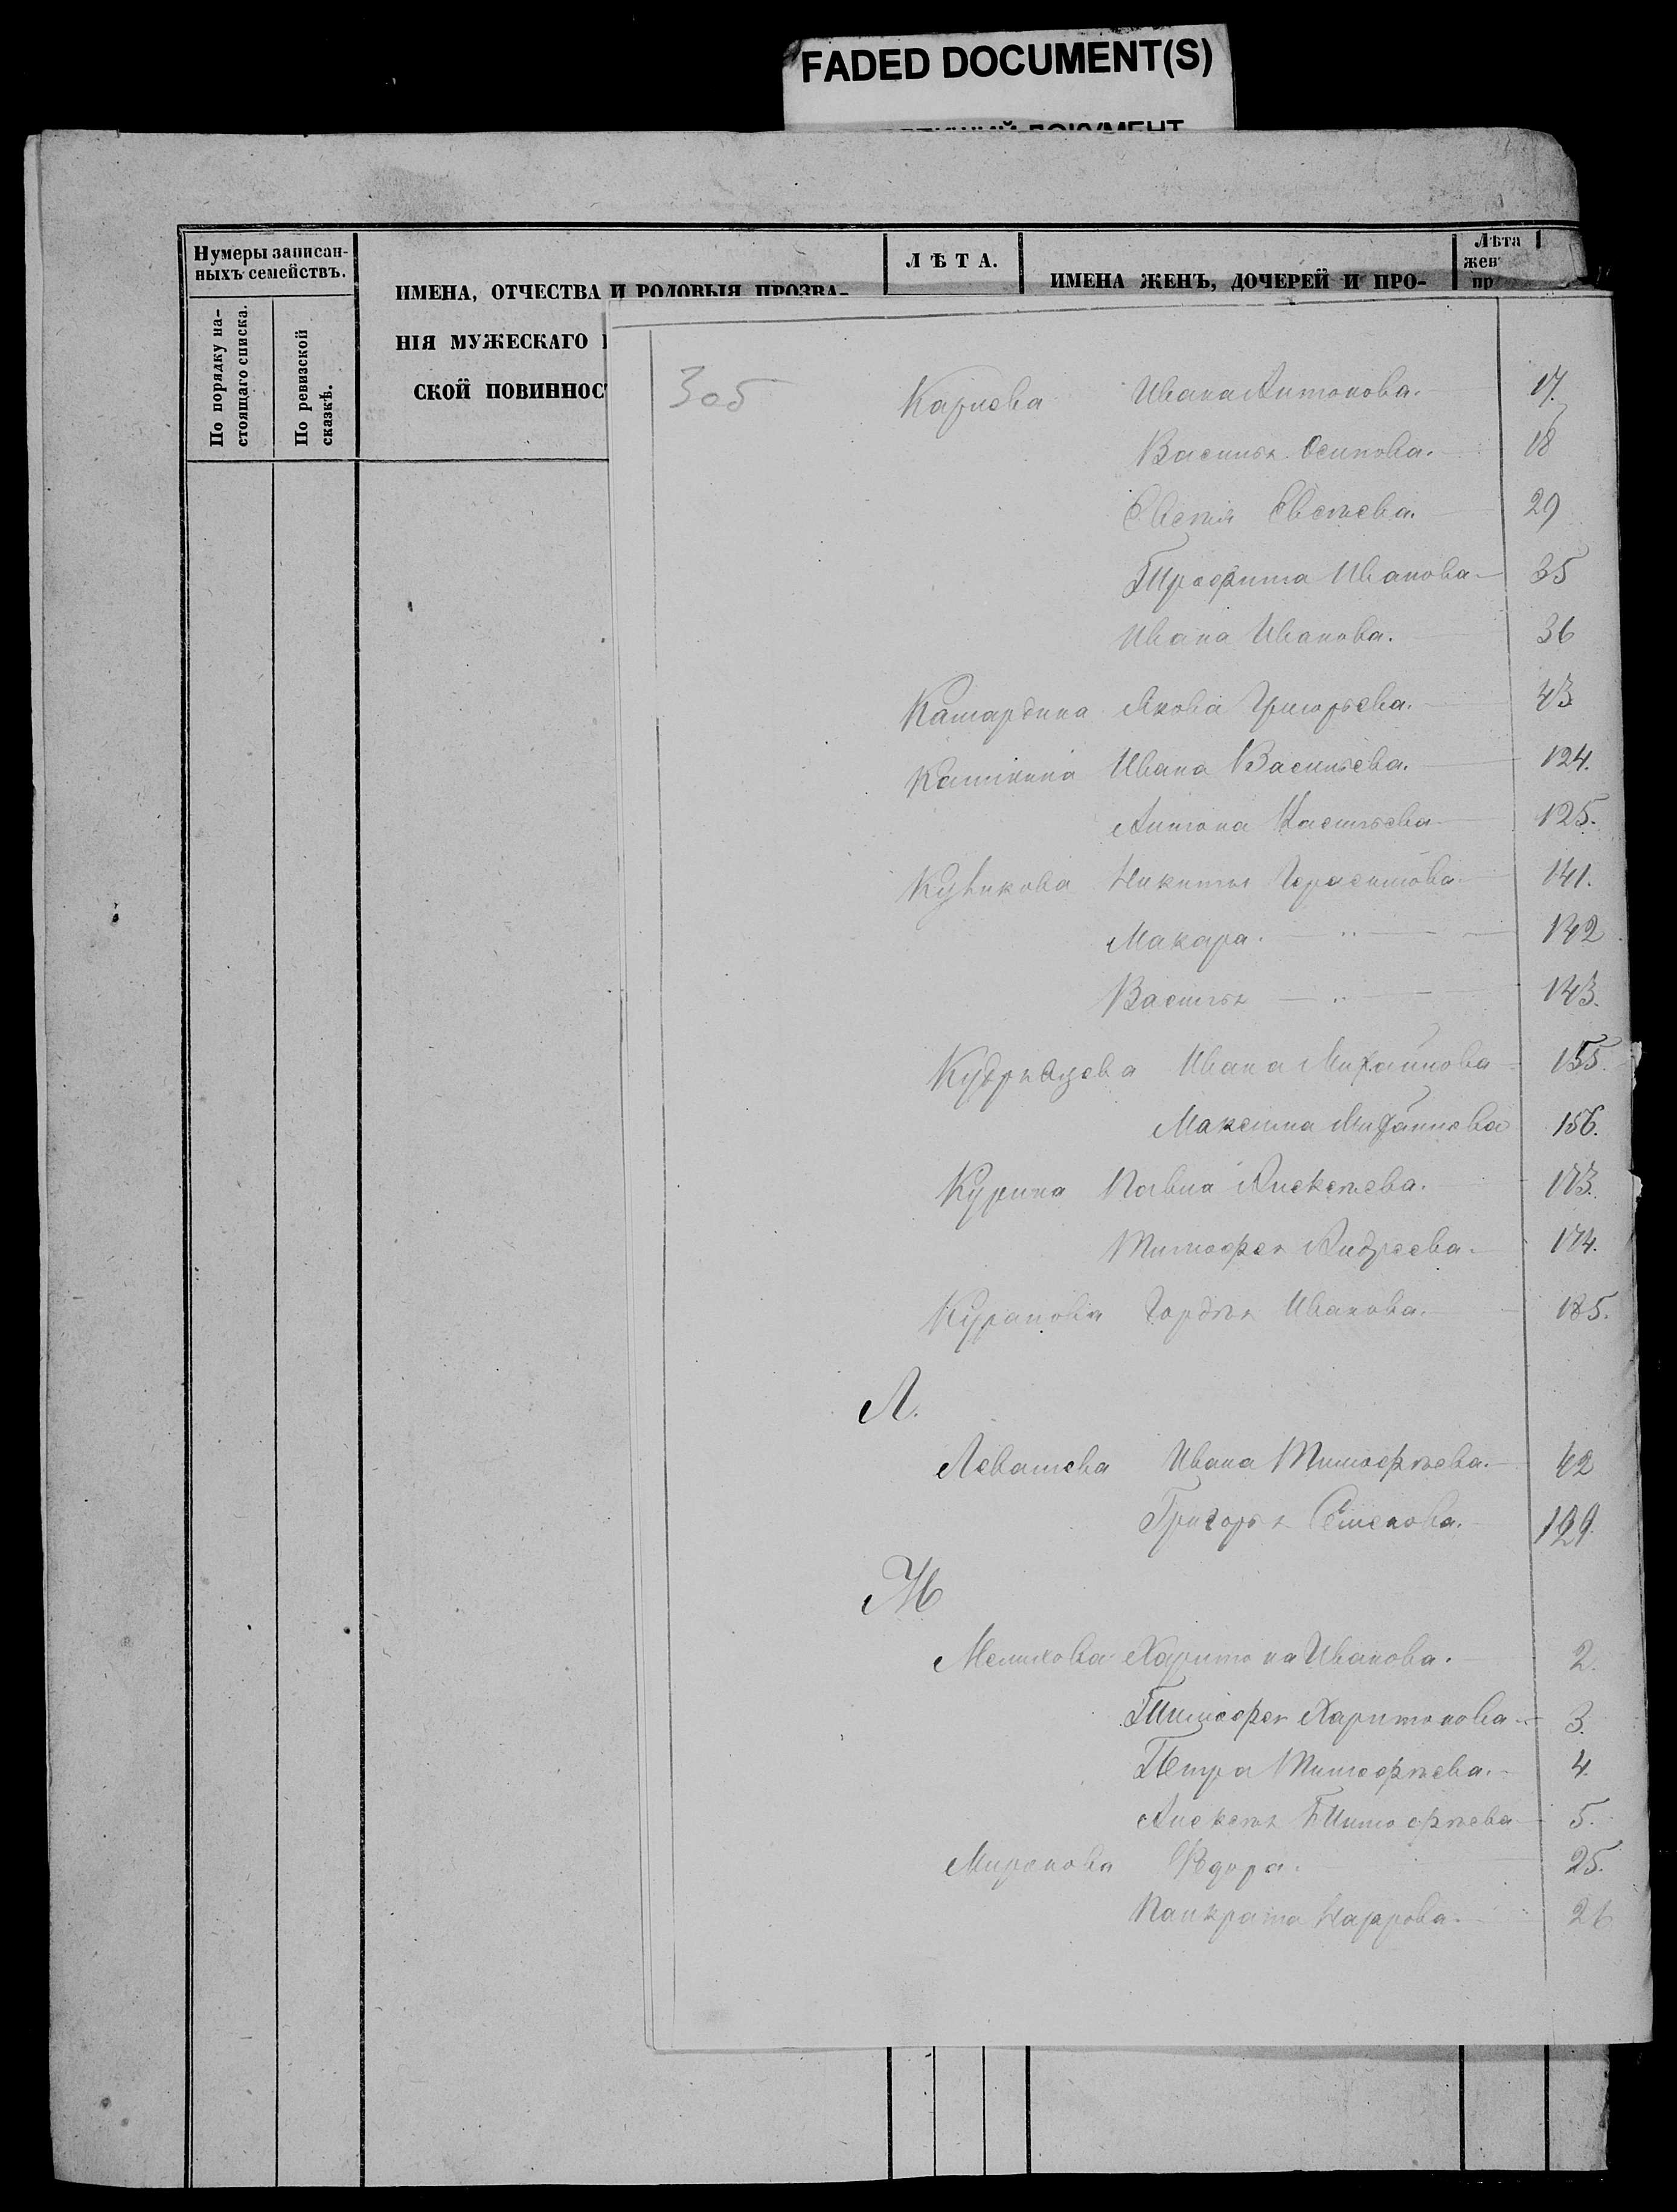 FADED DOCUMENT(S)
Нумеры записан-
ныхъ семействъ.
По порядку на-
стоящаго списка.
По ревизской
сказкѣ.
ИМЕНА, ОТЧЕСТВА И РОДОВЫЯ ПРОЗВА-
НІЯ МУЖЕСКАГО
СКОЙ ПОВИННОС
ЛѢТА.
ИМЕНА ЖЕНЪ, ДОЧЕРЕЙ И ПРО-
Лѣта
жен
пр
305
Карпова Ивана Антонова. 17.
Василья Осипова. 18
Евсѣя Евсѣева. 29
Трофима Иванова 35
Ивана Иванова. 36
Якова Григорьева. 43
Каткина Ивана Васильева. 124.
Антона Касьянова 125.
Куликова Никиты Герасимова 141.
Макара. — " — 142
Василья — " — 143.
Кудрявцева Ивана Михайлова 155.
Максима Михайлова 156.
Курина Павла Алексѣева. 173.
Тимофея Андреева. 174.
Гордѣя Иванова. 185.
Л.
Левашева Ивана Тимофѣева. 62
Григорья Семенова. 129.
М
Мелихова Харитона Иванова. 2.
Тимофея Харитонова 3.
Петра Тимофѣева. 4.
Алексѣя Тимофѣева 5.
Миронова Ѳедора. 25.
Панкрата 26